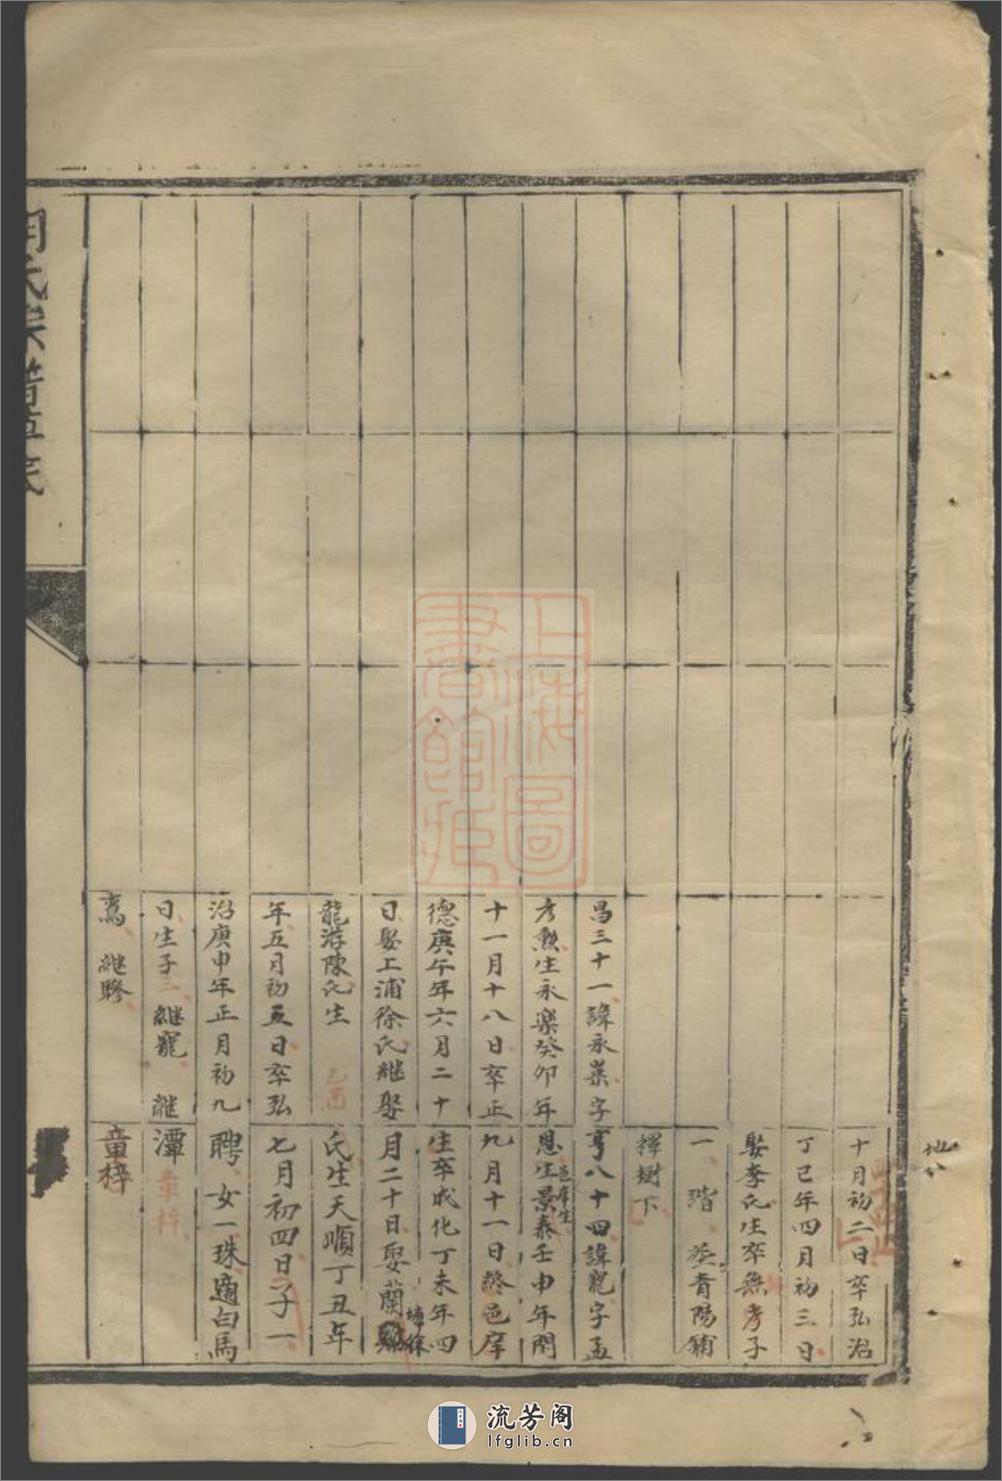 十月初二日卒弘治
丁巳年四月初三日
娶李氏生卒無考子
一 瑎 葬青陽鋪
擇樹下
昌三十一諱永業字
彥勲生永樂癸卯年
十一月十八日卒正
德庚午年六月二十
日娶上浦徐氏繼娶
龍游陳氏生 乙酉
年五月初五日卒弘
治庚申年正月初九
日生子三 繼寵 繼
鸞 繼膠
亨八十四諱寵字孟
恩生景泰壬申年閏
邑庠生
九月十一日終邑庠
生卒成化丁未年四
月二十日娶蘭
徐
氏生天順丁丑年
七月初四日子一
聘 女一珠適白馬
潭 童梓
童梓
上海圖書館藏
流芳阁
lfglib.cn